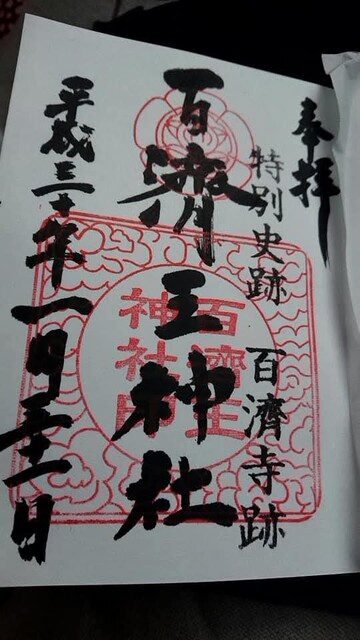 奉拝
特別史跡 百濟寺跡
百濟王神社
百濟王
神社印
平成三十年一月三十一日